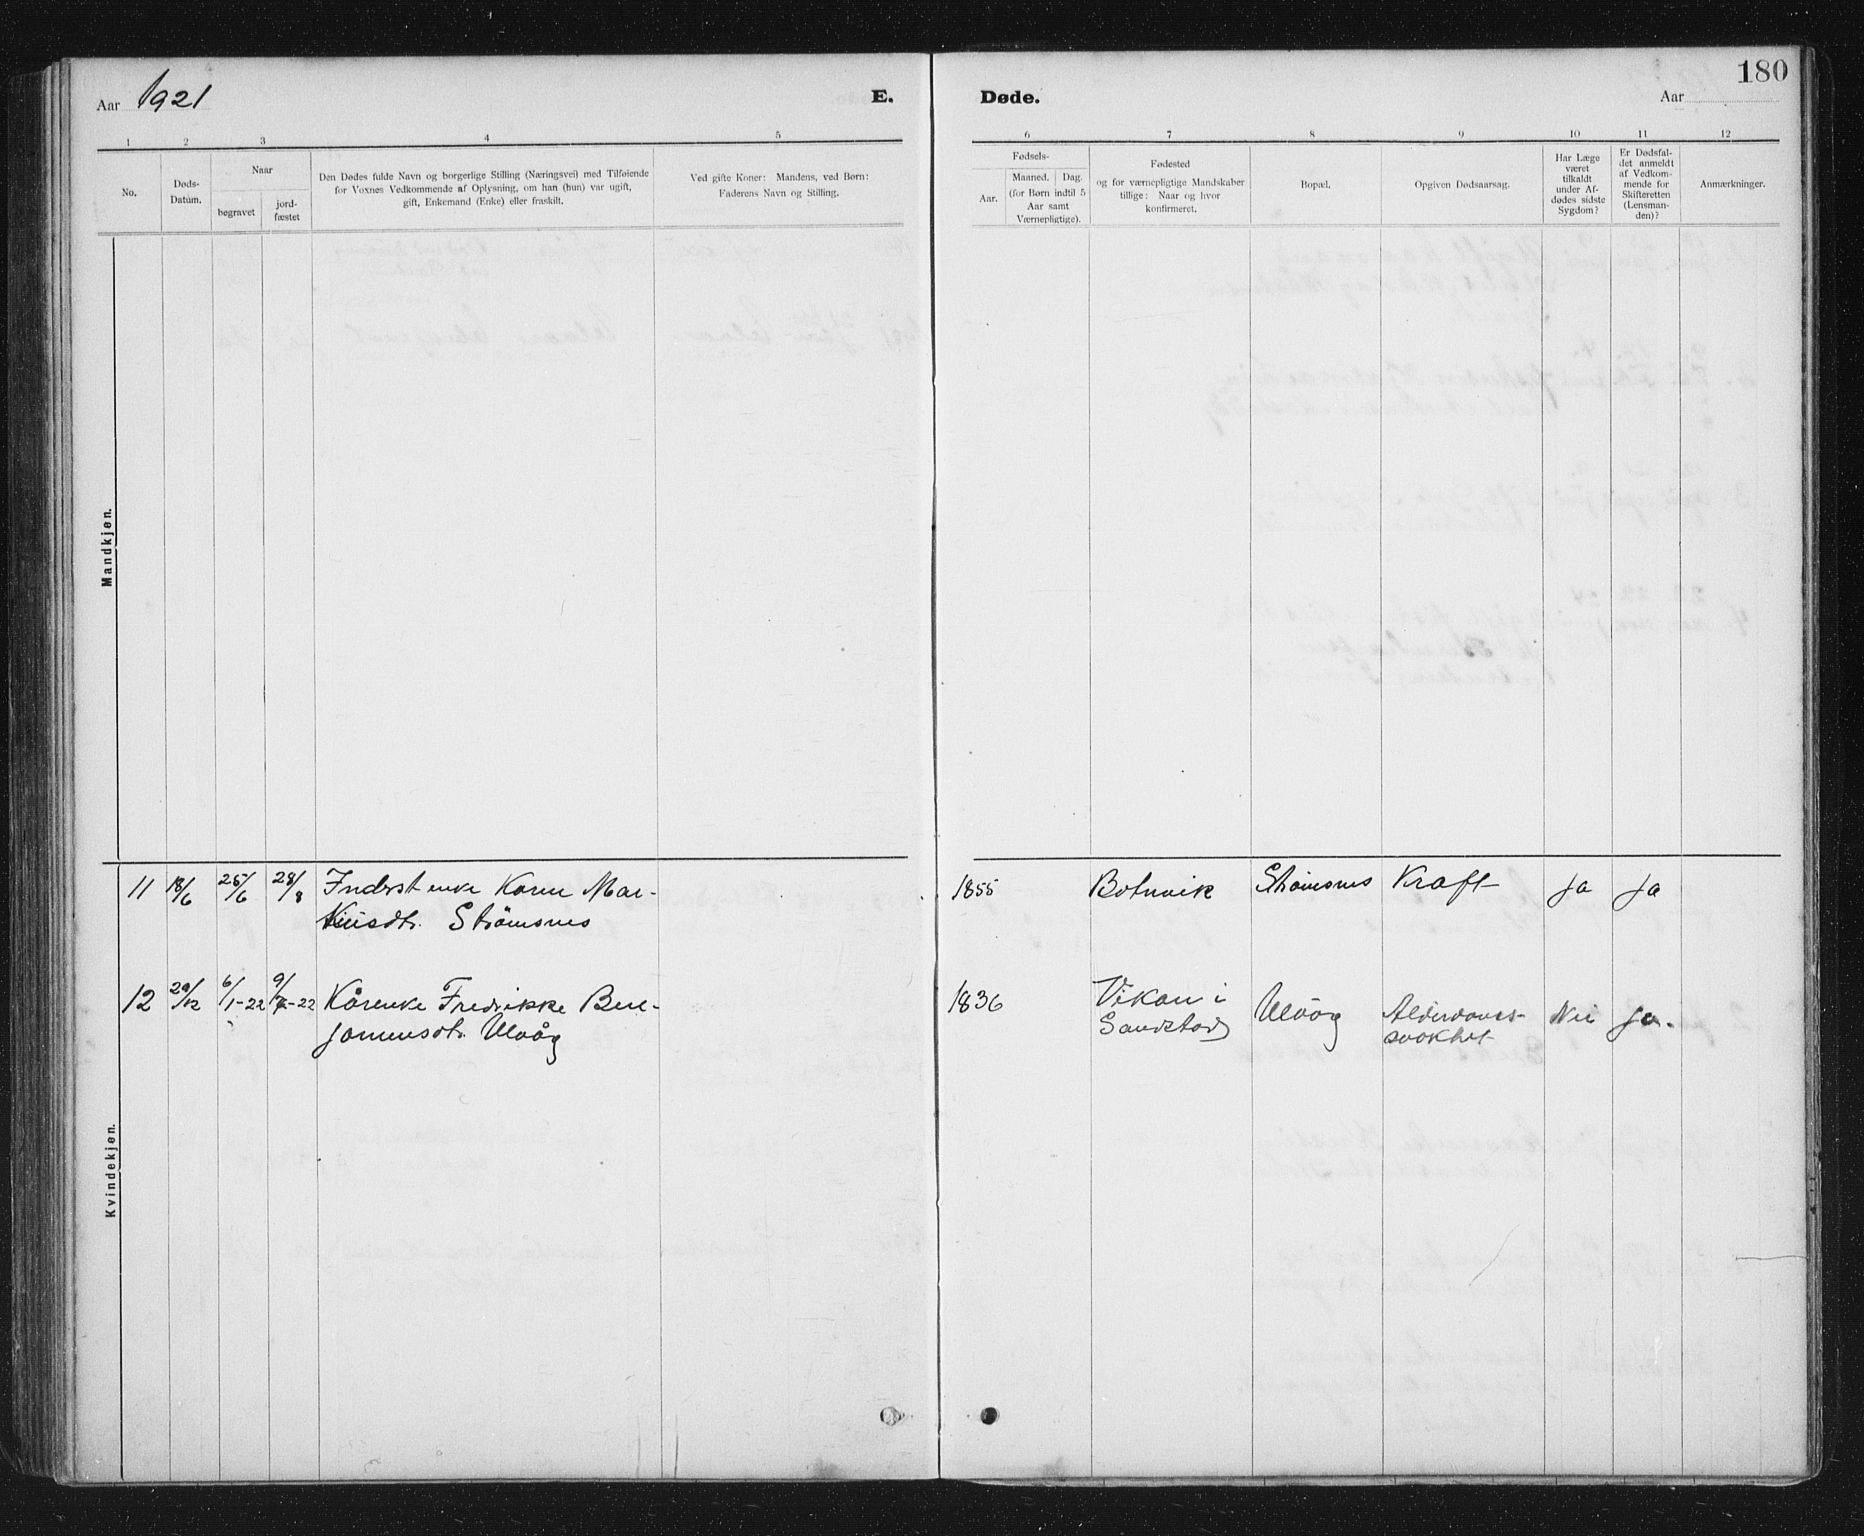 Aar 1921
E.
Døde.
180
Aar
1 2 3 4 5
6 7 8 9 10 11 12
No.
Døds-
Datum.
Naar
begravet
jord-
fæstet
Den Dødes fulde Navn og borgerlige Stilling (Næringsvei) med Tilføiende
for Voxnes Vedkommende af Oplysning, om han (hun) var ugift,
gift, Enkemand (Enke) eller fraskilt.
Ved gifte Koner: Mandens, ved Børn:
Faderens Navn og Stilling.
Fødsels-
Aar.
Maaned. Dag.
(for Børn indtil 5
Aar samt
Værnepligtige).
Fødested
og for værnepligtige Mandskaber
tillige: Naar og hvor
konfirmeret.
Bopæl.
Opgiven Dødsaarsag.
Har Læge
været
tilkaldt
under Af-
dødes sidste
Sygdom?
Er Dødsfal-
det anmeldt
af Vedkom-
mende for
Skifteretten
(Lensman-
den)?
Anmærkninger.
Mandkjøn.
Kvindekjøn.
11 18/6 25/6 28/8 Inderst enke Karen Mar- 1855 Botnvik Strömsnes Kraft Ja Ja
Strömsnes
12 29/12 6/1-22 9/-22 Kårenke Fredrikke Ben- 1836 Vikan i Ulvåg Alderdoms- Nei Ja.
jaminsdt. Ulvåg Sandstad svakhet